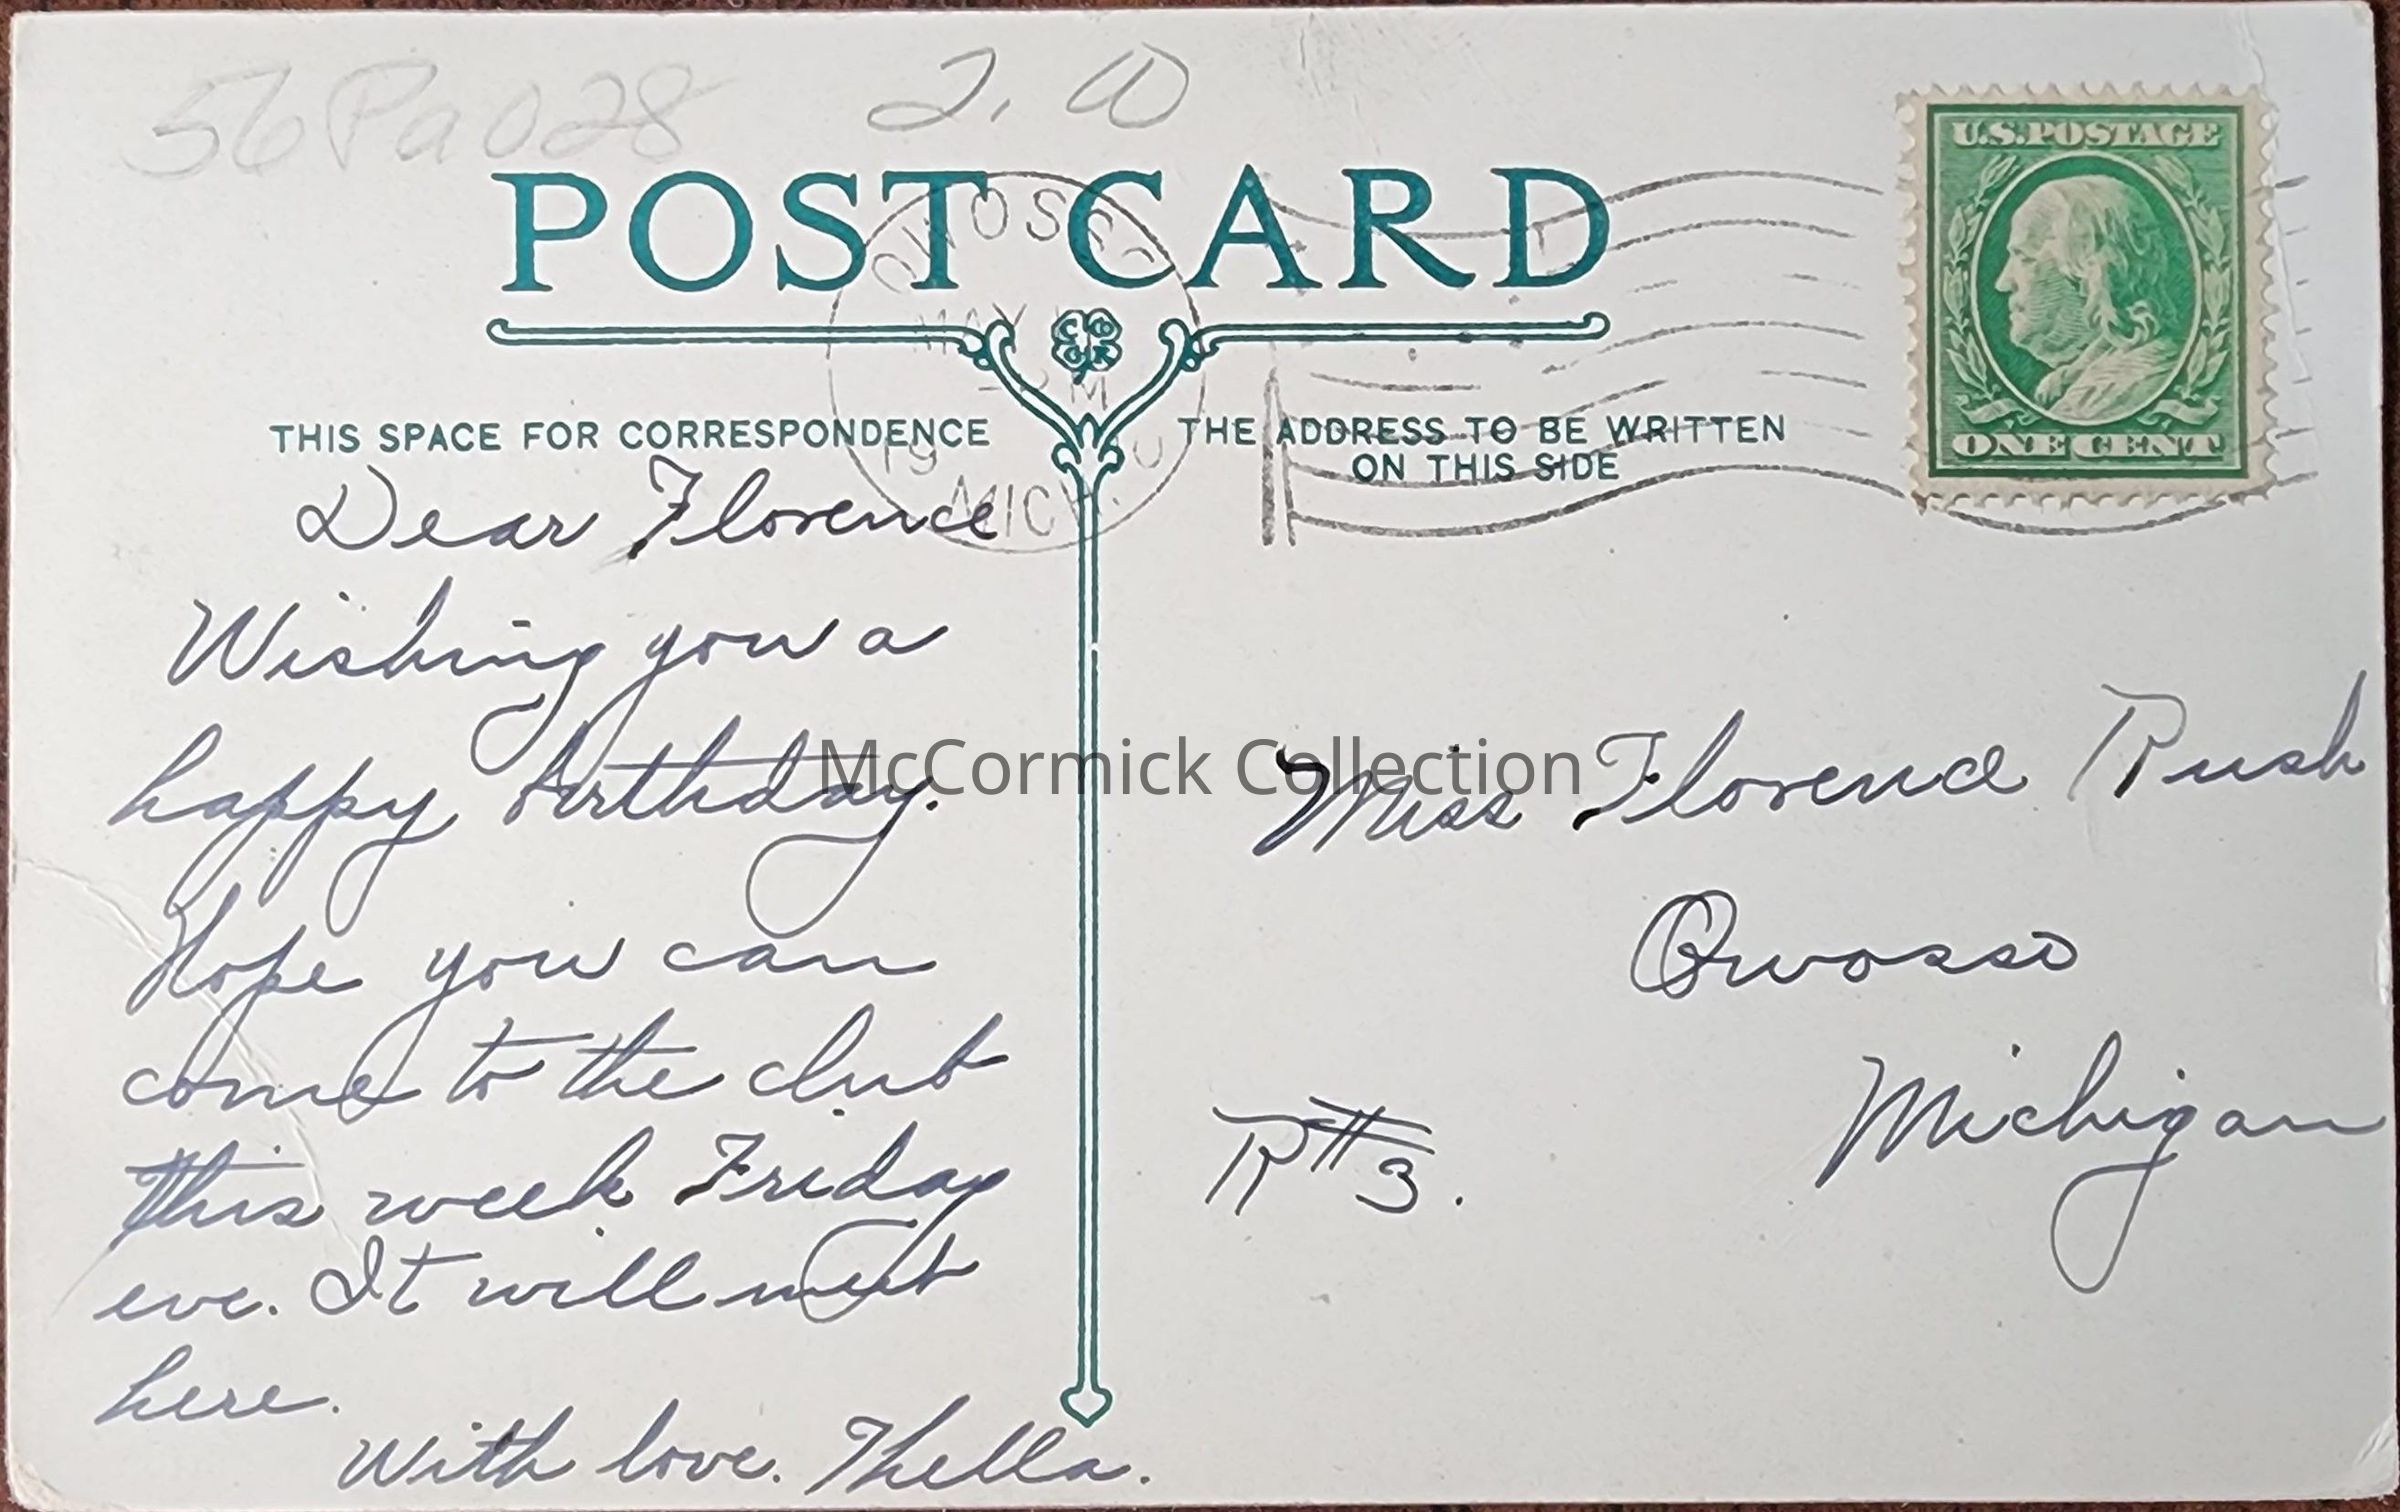 56Pa028 2.00
U.S. POSTAGE
POST CARD
OWOSSO
MAY
PM
19
MICH.
THIS SPACE FOR CORRESPONDENCE
THE ADDRESS TO BE WRITTEN
ON THIS SIDE
ONE CENT
Dear Florence
Wishing you a
happy birthday.
Hope you can
come to the club
this week Friday
eve. It will meet
here.
With love. Thella.
McCormick Collection
Miss Florence Rush
Owosso
Michigan
R#3.